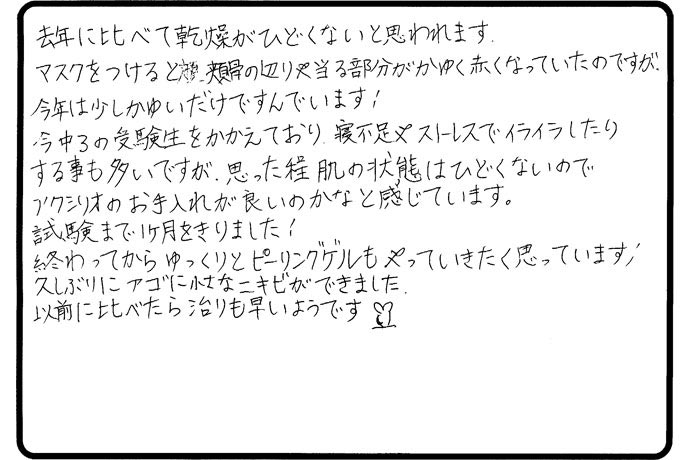 去年に比べて乾燥がひどくないと思われます.
マスクをつけると 頬骨の辺りや当る部分がかゆく赤くなっていたのですが、
今年は少しかゆいだけですんでいます!
今中3の受験生をかかえており、寝不足やストレスでイライラしたり
する事も多いですが、思った程肌の状態はひどくないので
アクシリオのお手入れが良いのかなと感じています。
試験まで1ヶ月をきりました!
終わってからゆっくりとピーリングゲルもやっていきたく思っています!
久しぶりにアゴに小さなニキビができました.
以前に比べたら治りも早いようです